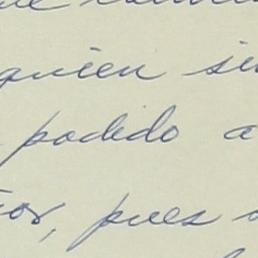 quien si
podido a
ños, pues